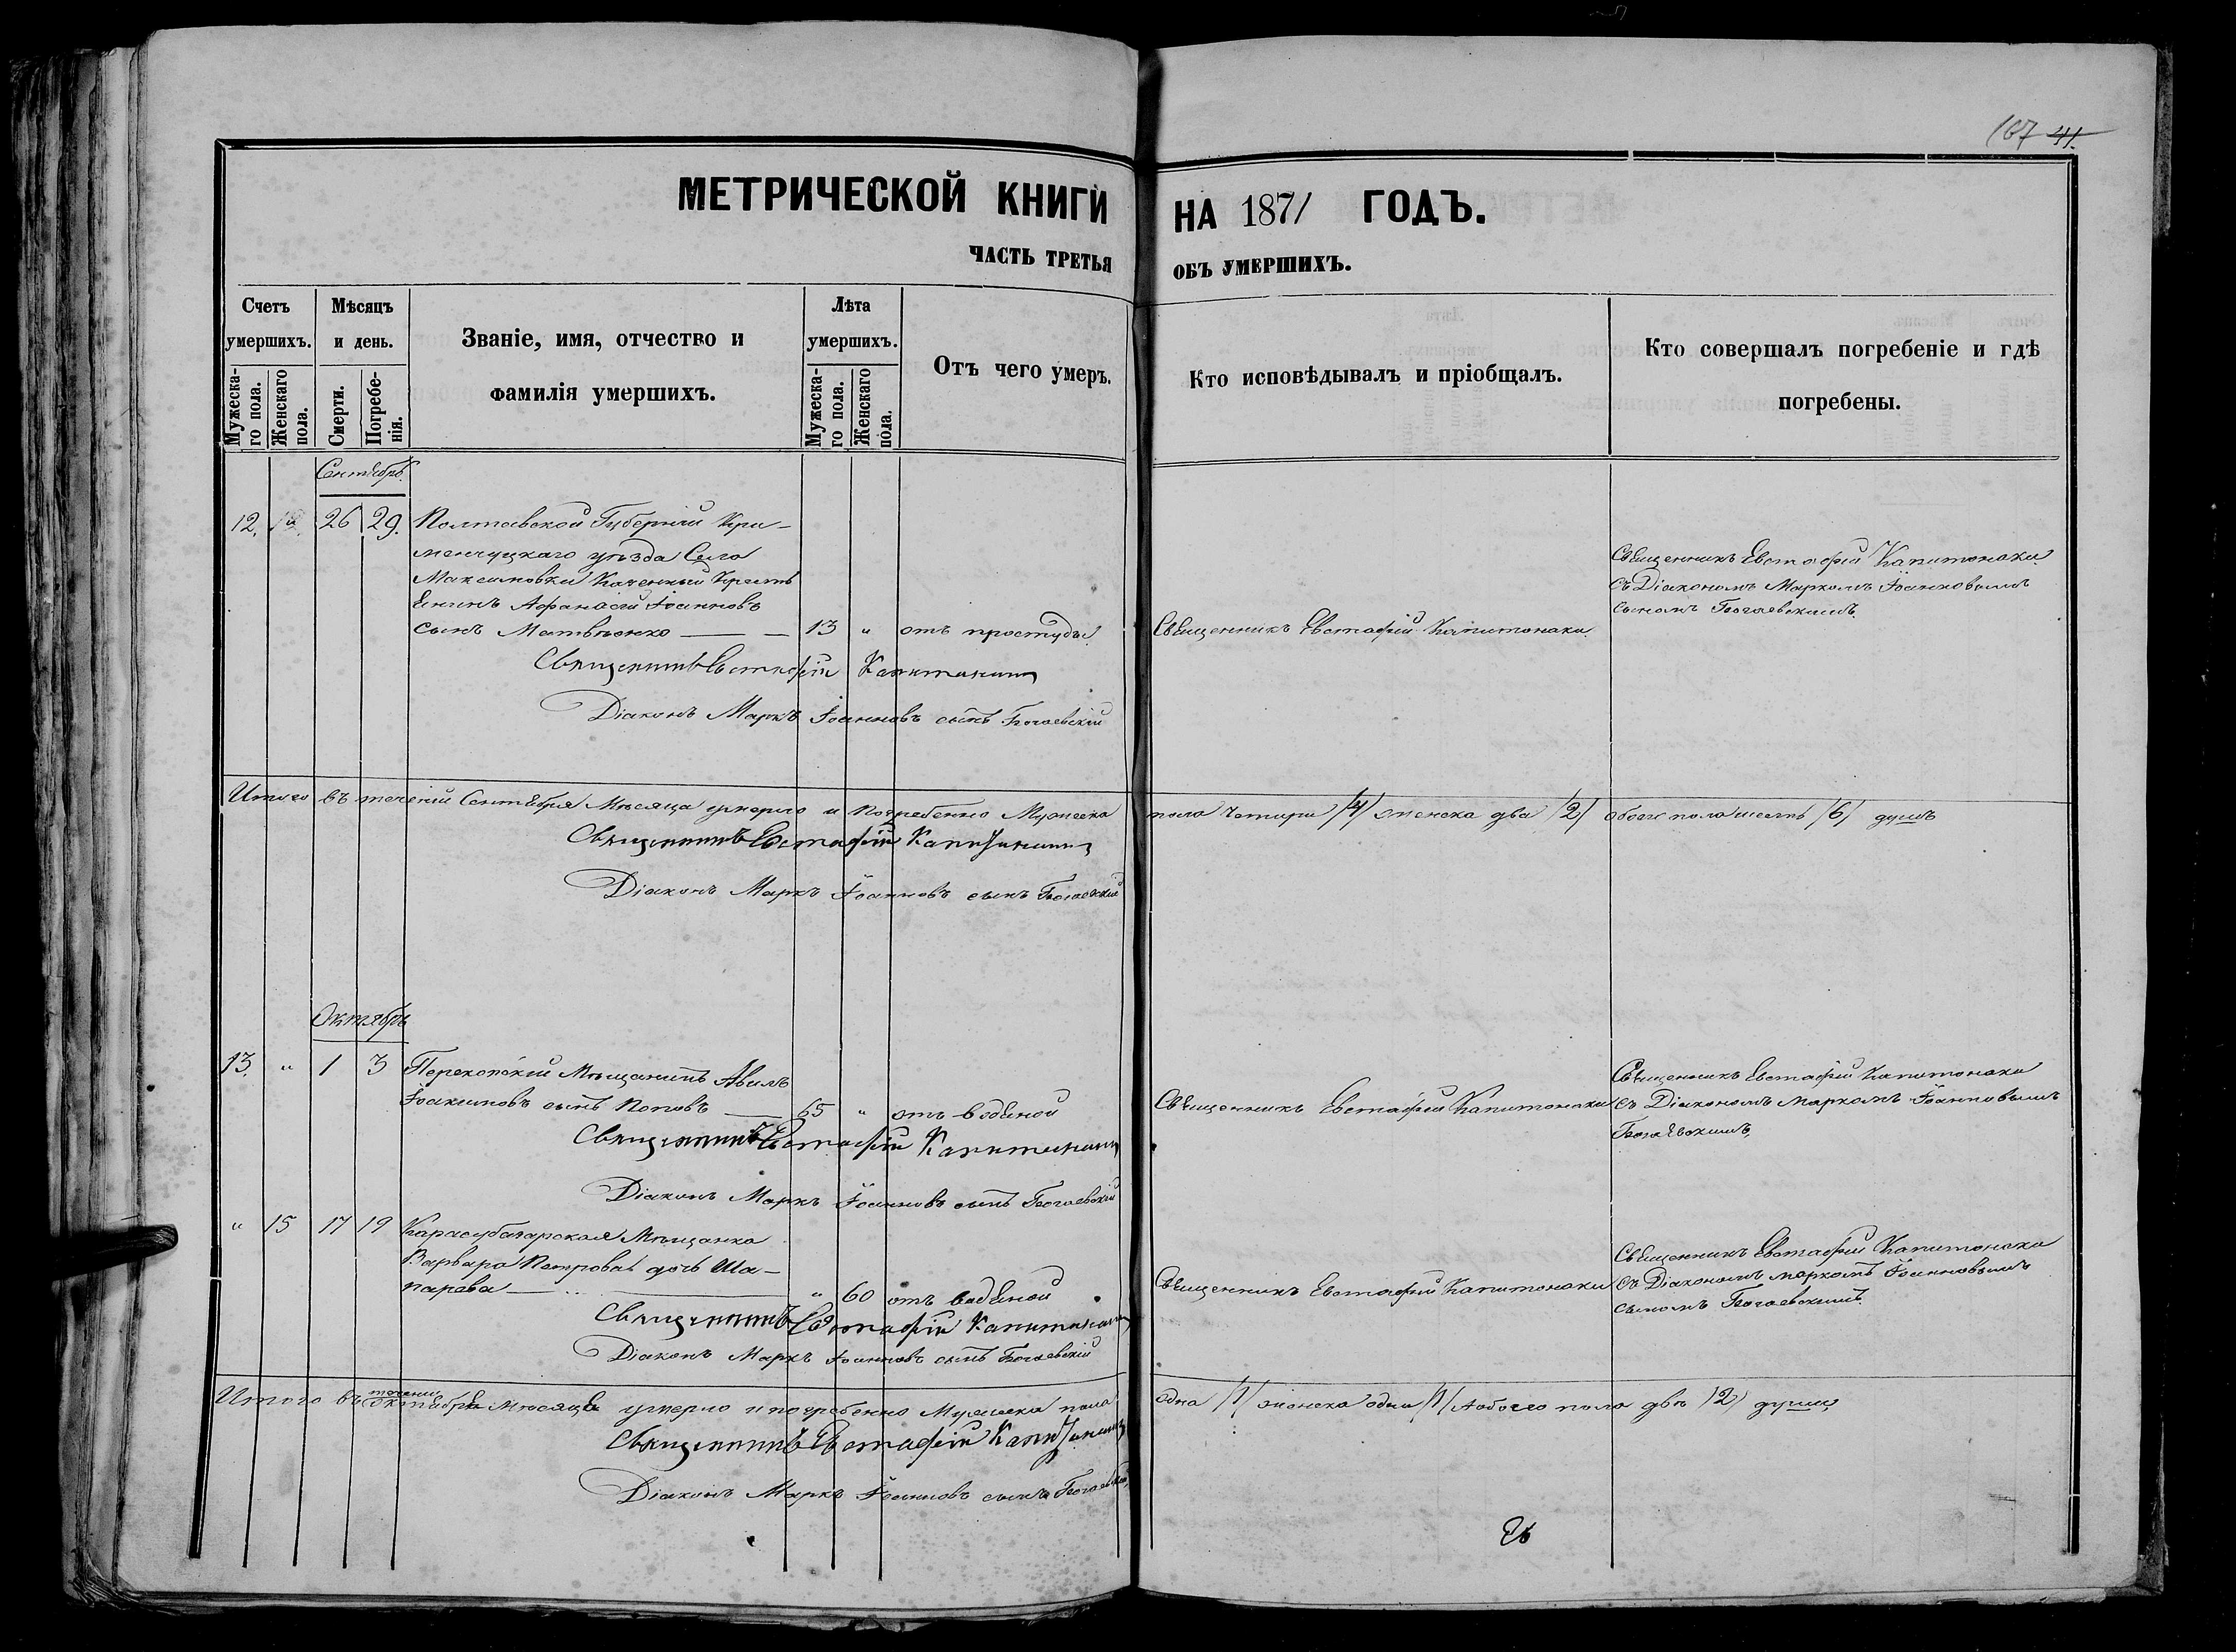 167 41.
МЕТРИЧЕСКОЙ КНИГИ НА 1871 ГОДЪ.
ЧАСТЬ ТРЕТЬЯ ОБЪ УМЕРШИХЪ.
Счетъ умершихъ.
Мужеска-го пола.
Женскаго пола.
Мѣсяцъ и день.
Смерти.
Погребе-нія.
Званіе, имя, отчество и фамилія умершихъ.
Лѣта умершихъ.
Мужеска-го пола.
Женскаго пола.
Отъ чего умеръ.
Кто исповѣдывалъ и пріобщалъ.
Кто совершалъ погребеніе и гдѣ погребены.
Сентябрь.
12. 26 29. Полтавской Губерніи Кри-
менчуцкаго уѣзда Село
Максимовки Казенный Крестъ
янинъ Афанасій Іоанновъ
сынъ Матвѣенко — — 13 " отъ простуды
Священникъ Евстафій Капитонаки
Священникъ Евстафій Капитонаки
съ Діакономъ Маркомъ Іоанновымъ
сыномъ Богаевскимъ.
Священникъ Евстафій Капитонаки
Діаконъ Маркъ Іоанновъ сынъ Богаевскій
Итого въ теченіи Сентября Мѣсяца умерло и погребенно Мужеска пола Четыри /4/ женска два /2/ обоег пола шесть /6/ душъ
Священникъ Евстафій Капитонаки
Діаконъ Маркъ Іоанновъ сынъ Богаевскій
Октябрь
13. " 1 3 Перекопскій Мѣщанинъ Авимъ
Іоакимовъ сынъ Поповъ — 65 " отъ водяной
Священникъ Евстафій Капитонаки
Священникъ Евстафій Капитонаки
съ Діакономъ Маркомъ Іоанновымъ
Богаевскимъ.
Священникъ Евстафій Капитонаки
Діаконъ Маркъ Іоанновъ сынъ Богаевскій
" 15 17 19 Карасубазарская Мѣщанка
Варвара Петрова дочь Ша-
парева — " 60 отъ водяной
Священникъ Евстафій Капитонаки
Священникъ Евстафій Капитонаки
съ Діакономъ Маркомъ Іоанновымъ
сыномъ Богаевскимъ.
Священникъ Евстафій Капитонаки
Діаконъ Маркъ Іоанновъ сынъ Богаевскій
Итого въ теченіи Октября Мѣсяца умерло и погребенно Мужеска пола одна /1/ женска одна /1/ А обоего пола двѣ /2/ души
Священникъ Евстафій Капитонаки
Діаконъ Маркъ Іоанновъ сынъ Богаевскій